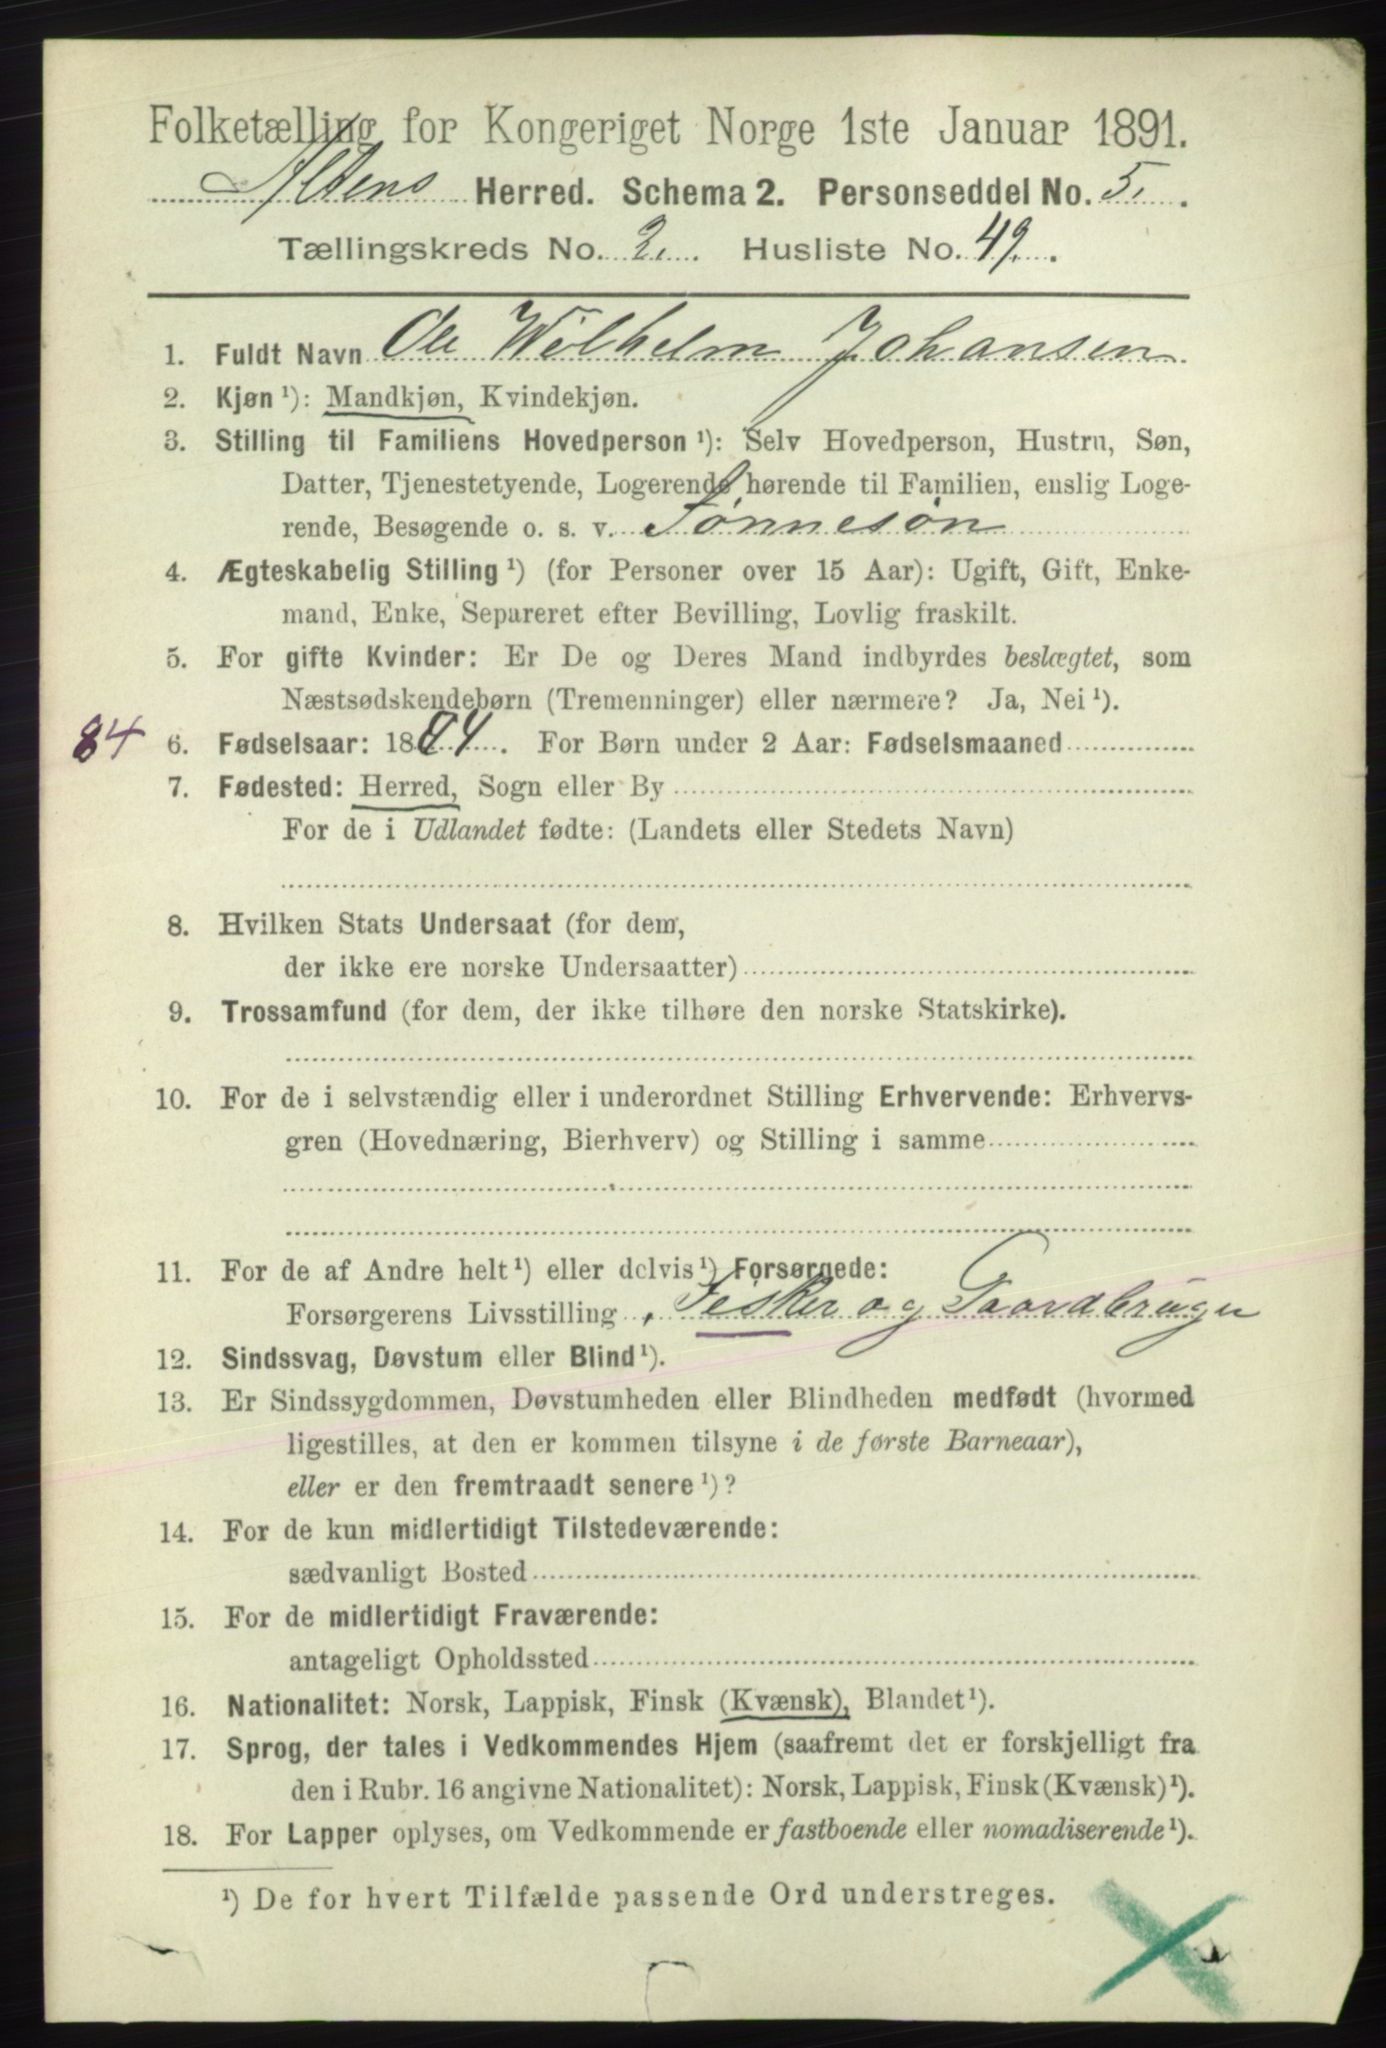 Folketælling for Kongeriget Norge 1ste Januar 1891.
Altens Herred. Schema 2. Personseddel No. 5.
Tællingskreds No. 2. Husliste No. 49.
1. Fuldt Navn Ole Wilhelm Johansen
2. Kjøn ¹): Mandkjøn, Kvindekjøn.
3. Stilling til Familiens Hovedperson ¹): Selv Hovedperson, Hustru, Søn,
Datter, Tjenestetyende, Logerende hørende til Familien, enslig Loge-
rende, Besøgende o. s. v. Sønnesøn
4. Ægteskabelig Stilling ¹) (for Personer over 15 Aar): Ugift, Gift, Enke-
mand, Enke, Separeret efter Bevilling, Lovlig fraskilt.
5. For gifte Kvinder: Er De og Deres Mand indbyrdes beslægtet, som
Næstsødskendebørn (Tremenninger) eller nærmere? Ja, Nei ¹).
84 6. Fødselsaar: 1884. For Børn under 2 Aar: Fødselsmaaned
7. Fødested: Herred, Sogn eller By
For de i Udlandet fødte: (Landets eller Stedets Navn)
8. Hvilken Stats Undersaat (for dem,
der ikke ere norske Undersaatter)
9. Trossamfund (for dem, der ikke tilhøre den norske Statskirke).
10. For de i selvstændig eller i underordnet Stilling Erhvervende: Erhvervs-
gren (Hovednæring, Bierhverv) og Stilling i samme
11. For de af Andre helt ¹) eller delvis ¹) Forsørgede:
Forsørgerens Livsstilling Fisker og Gaardbruger
12. Sindssvag, Døvstum eller Blind ¹).
13. Er Sindssygdommen, Døvstumheden eller Blindheden medfødt (hvormed
ligestilles, at den er kommen tilsyne i de første Barneaar),
eller er den fremtraadt senere ¹)?
14. For de kun midlertidigt Tilstedeværende:
sædvanligt Bosted
15. For de midlertidigt Fraværende:
antageligt Opholdssted
16. Nationalitet: Norsk, Lappisk, Finsk (Kvænsk), Blandet ¹).
17. Sprog, der tales i Vedkommendes Hjem (saafremt det er forskjelligt fra
den i Rubr. 16 angivne Nationalitet): Norsk, Lappisk, Finsk (Kvænsk) ¹).
18. For Lapper oplyses, om Vedkommende er fastboende eller nomadiserende ¹).
¹) De for hvert Tilfælde passende Ord understreges.